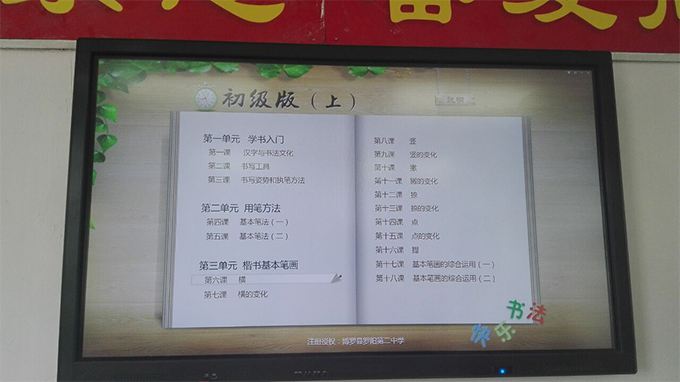 初级版（上）
第一单元 学书入门
第一课 汉字与书法文化
第二课 书写工具
第三课 书写姿势和执笔方法
第二单元 用笔方法
第四课 基本笔法（一）
第五课 基本笔法（二）
第三单元 楷书基本笔画
第六课 横
第七课 横的变化
第八课 竖
第九课 竖的变化
第十课 撇
第十一课 撇的变化
第十二课 捺
第十三课 捺的变化
第十四课 点
第十五课 点的变化
第十六课 提
第十七课 基本笔画的综合运用（一）
第十八课 基本笔画的综合运用（二）
快乐书法
注册授权：博罗县罗阳第二中学